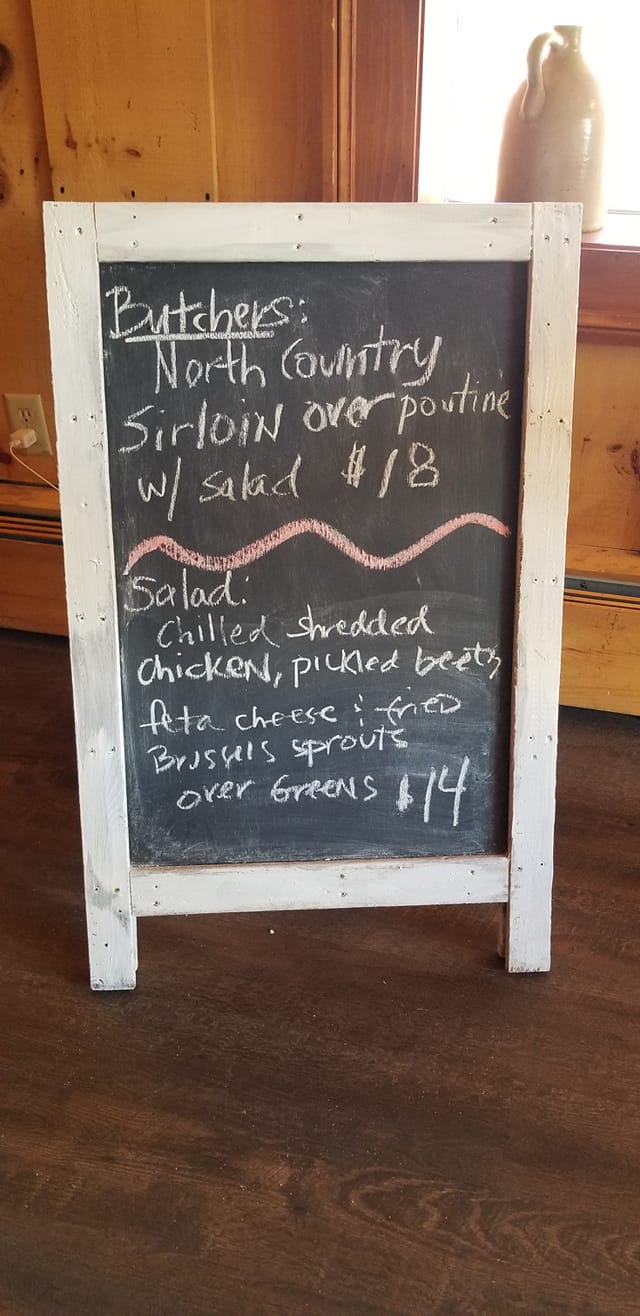 Butchers:
North Country
Sirloin over poutine
w/ salad $18
Salad:
Chilled shredded
chicken, pickled beets
feta cheese & fried
Brussels sprouts
over Greens $14